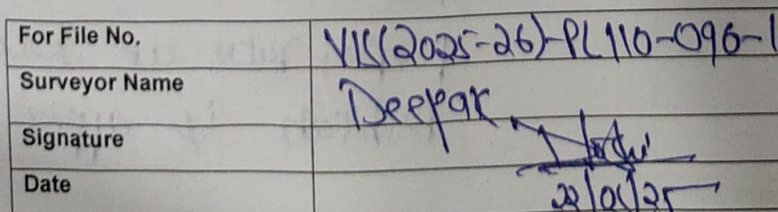 For File No. VIS(2025-26)-PL110-096-1
Surveyor Name Deepak
Signature
Date